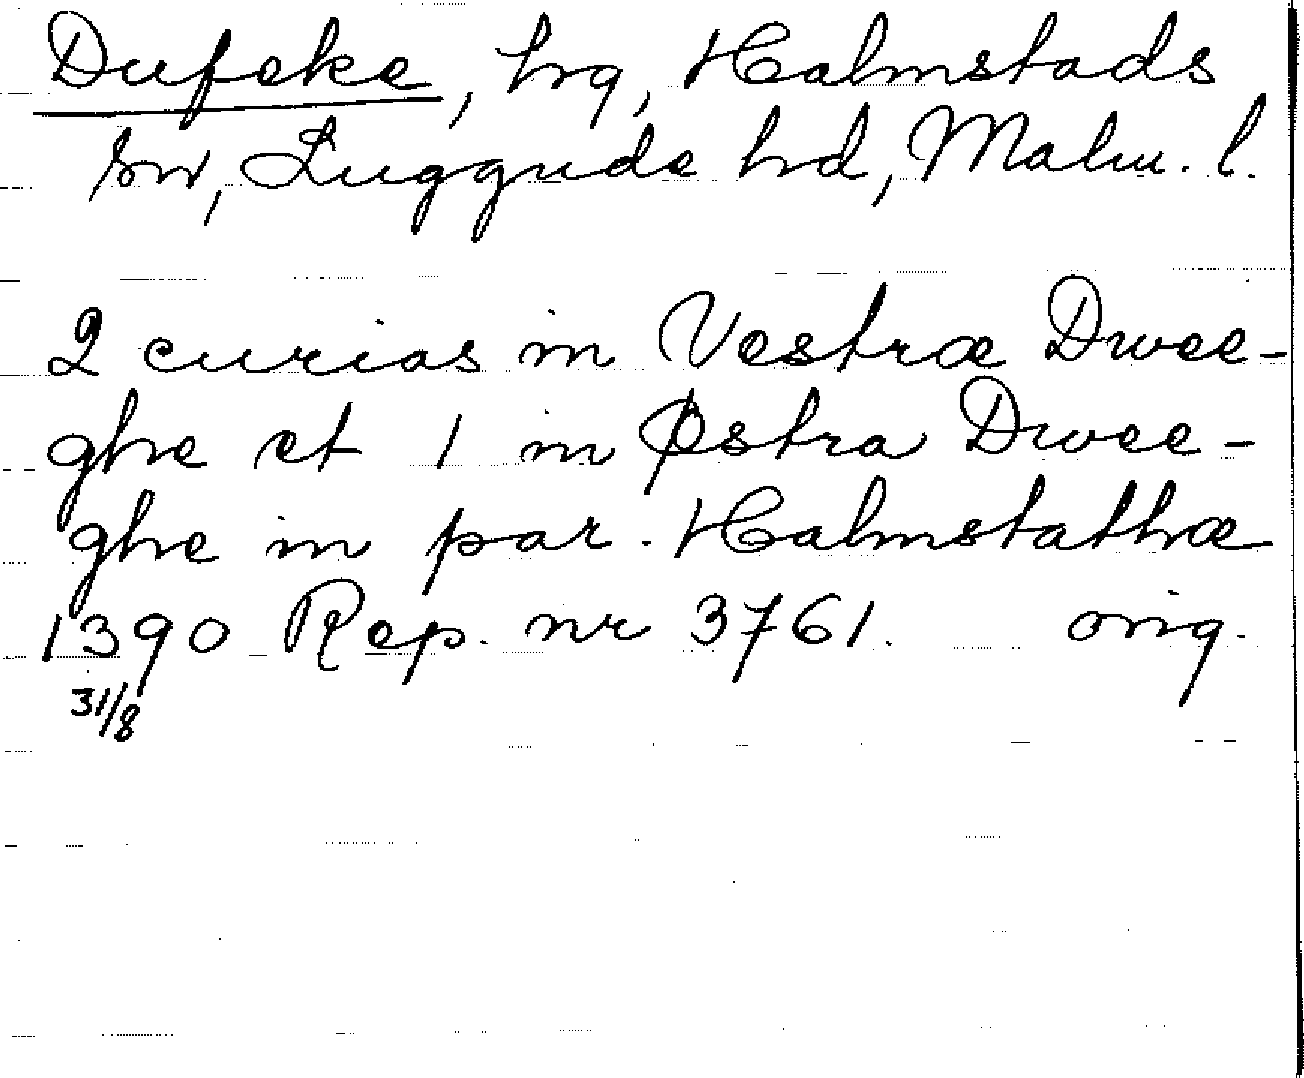 Dufeke, hg, Halmstads
sn, Luggude hd, Malm. l.
2 curias in Vestræ Dwee-
ghe et 1 in Østra Dwee-
ghe in par. Halmstathæ
1390 Rep. nr 3761. orig.
31/8